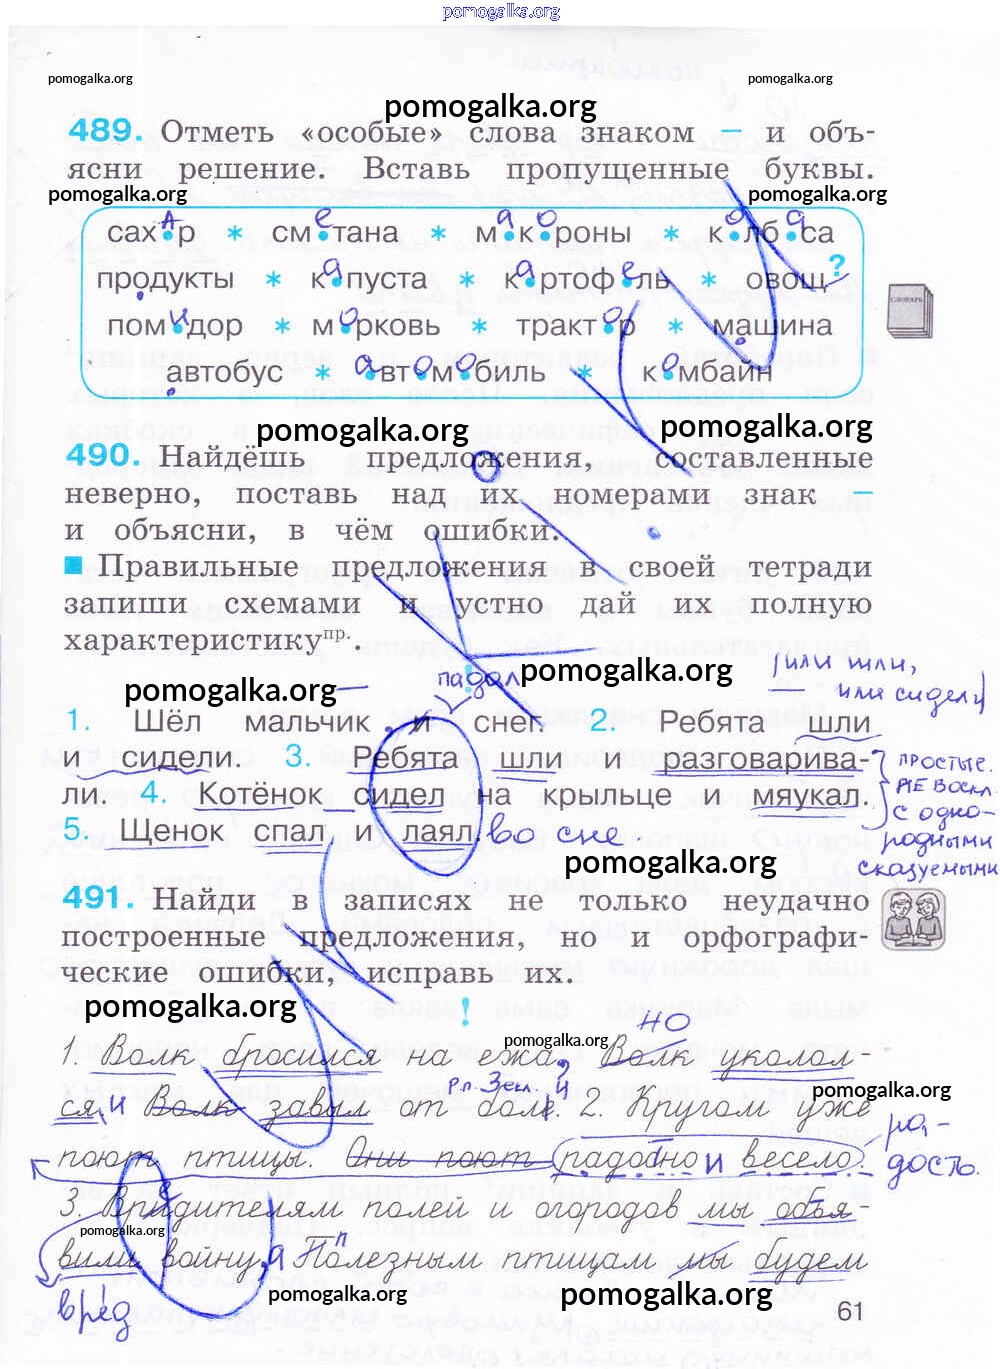 pomogalka.org
pomogalka.org pomogalka.org
pomogalka.org
489. Отметь «особые» слова знаком – и объ-
ясни решение. Вставь пропущенные буквы.
pomogalka.org pomogalka.org
сахар * сметана * макороны * колбаса
продукты * капуста * картофель * овощ ?
помидор * морковь * трактор * машина
автобус * автомобиль * комбайн
pomogalka.org pomogalka.org
490. Найдёшь предложения, составленные
неверно, поставь над их номерами знак –
и объясни, в чём ошибки.
Правильные предложения в своей тетради
запиши схемами и устно дай их полную
характеристику пр. .
pomogalka.org
! pomogalka.org
падал
или шли,
или сидели
1. Шёл мальчик и снег. 2. Ребята шли
и сидели. 3. Ребята шли и разговарива-
ли. 4. Котёнок сидел на крыльце и мяукал.
5. Щенок спал и лаял во сне.
простые.
с одно-
родными
сказуемыми
pomogalka.org
491. Найди в записях не только неудачно
построенные предложения, но и орфографи-
ческие ошибки, исправь их.
pomogalka.org
!
но
pomogalka.org
1. Волк бросился на ежа, Волк уколол-
Р.п. 3скл. и
pomogalka.org
ся, и Волк завыл от боле. 2. Кругом уже
поют птицы. Они поют радобно и весело.
ра-
дость.
3. Вридителям полей и огородов мы объя-
pomogalka.org
вили войну, а Полезным птицам мы будем
вред
pomogalka.org pomogalka.org
61